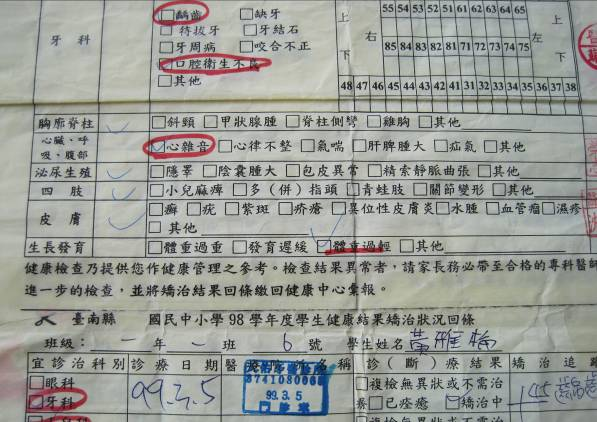 □齲齒 □缺牙
□待拔牙 □牙結石
牙科 □牙周病 □咬合不正
□口腔衛生不良
□其他
上 右 下
55 54 53 52 51 61 62 63 64 65
85 84 83 82 81 71 72 73 74 75
48 47 46 45 44 43 42 41 31 32 33 34 35 36 37 38
上 左 下
胸廓脊柱 □斜頸 □甲狀腺腫 □脊柱側彎 □雞胸 □其他
心臟、呼吸、腹部 □心雜音 □心律不整 □氣喘 □肝脾腫大 □疝氣 □其他
泌尿生殖 □隱睪 □陰囊腫大 □包皮異常 □精索靜脈曲張 □其他
四肢 □小兒麻痺 □多(併)指頭 □青蛙肢 □關節變形 □其他
皮膚 □癬 □疣 □紫斑 □疥瘡 □異位性皮膚炎 □水腫 □血管瘤 □濕疹
□其他
生長發育 □體重過重 □發育遲緩 □體重過輕 □其他
健康檢查乃提供您作健康管理之參考。檢查結果異常者,請家長務必帶至合格的專科醫師
進一步的檢查,並將矯治結果回條繳回健康中心彙報。
臺南縣 國民中小學98學年度學生健康結果矯治狀況回條
班級:一年一班 6號 學生姓名
宜診治科別 診療日期 醫 名稱 診(斷)療結果 矯治追
□眼科 99.3.5 8741080066 □複檢無異狀或不需治
□牙科 99.3.5 □已痊癒 □矯治中
□複檢無異狀或不需治